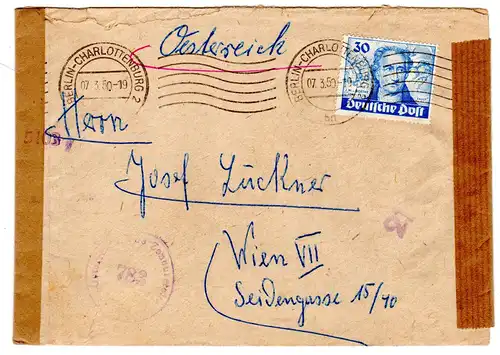 Oesterreich
BERLIN-CHARLOTTENBURG 2
07.3.50.-19
BERLIN-CHARLOTTENBURG
07.3.50.-19
30
Deutsche Post
Herrn
Josef Lückner
Wien VII
Seidengasse 15/40
783